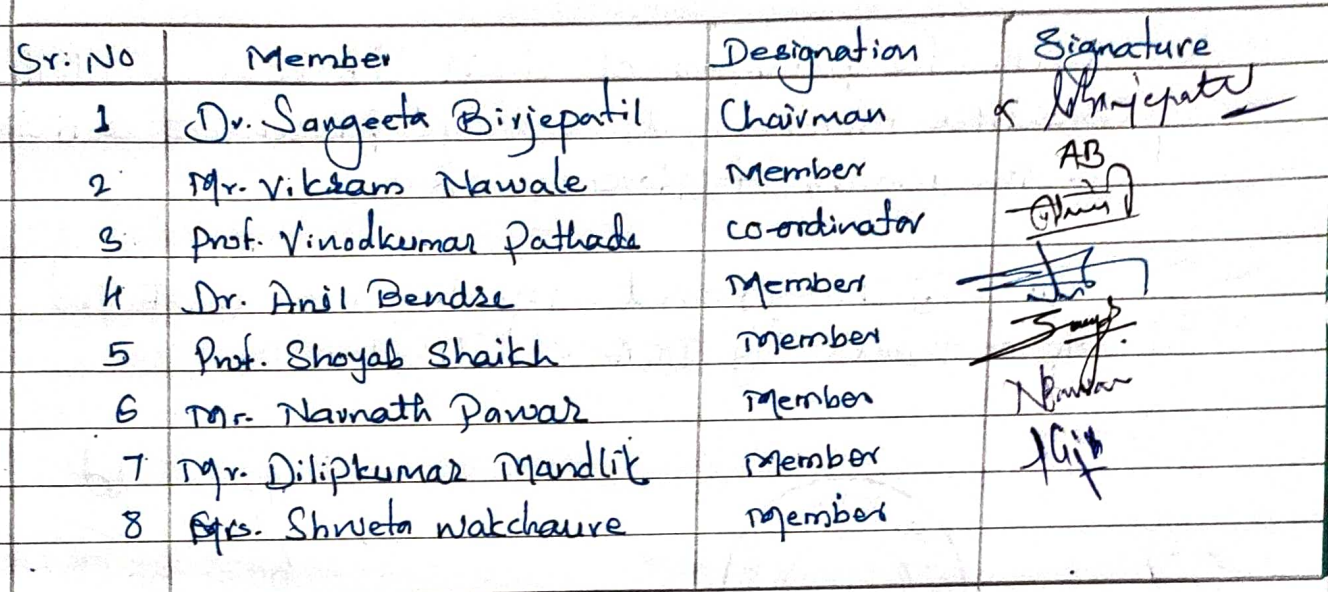 Sr. No Member Designation Signature
1 Dr. Sangeeta Birjepatil Chairman
2 Mr. Vikram Nawale Member AB
3 Prof. Vinodkumar Pathade Co-ordinator
4 Dr. Anil Bendse Member
5 Prof. Shoyab Shaikh Member
6 Mr. Navnath Pawar Member
7 Mr. Dilipkumar Mandlik Member
8 Mrs. Shweta Wakchaure Member